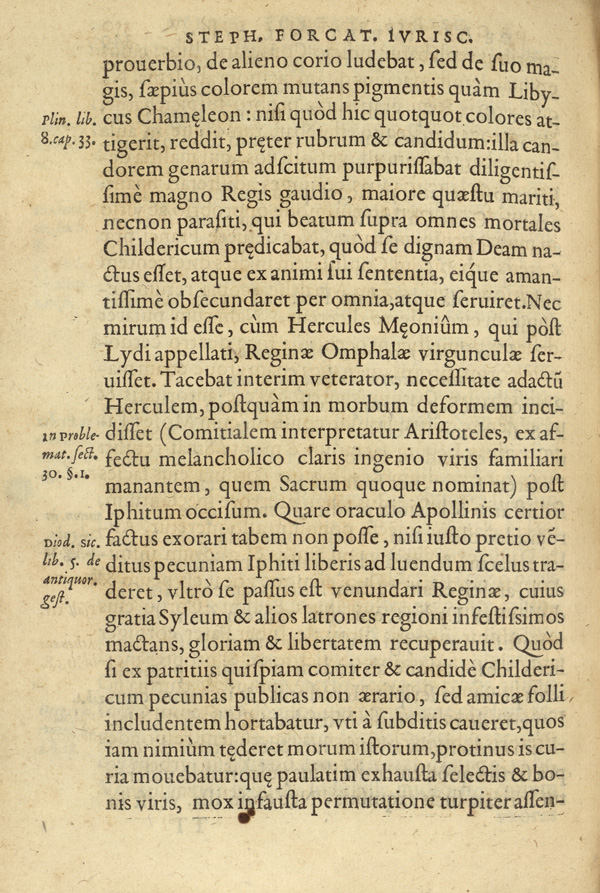 STEPH. FORCAT. IVRISC.
prouerbio, de alieno corio ludebat, sed de suo ma-
gis, sæpiùs colorem mutans pigmentis quàm Liby-
Plin. lib. cus Chamęleon : nisi quòd hic quotquot colores at-
8. cap. 33. tigerit, reddit, pręter rubrum & candidum:illa can-
dorem genarum adscitum purpurissabat diligentis-
simè magno Regis gaudio, maiore quæstu mariti,
necnon parasiti, qui beatum supra omnes mortales
Childericum prędicabat, quòd se dignam Deam na-
ctus esset, atque ex animi sui sententia, eiq́ue aman-
tissimè obsecundaret per omnia,atque seruiret.Nec
mirum id esse, cùm Hercules Męoniûm, qui pòst
Lydi appellati, Reginæ Omphalæ virgunculæ ser-
uisset. Tacebat interim veterator, necessitate adactũ
Herculem, postquàm in morbum deformem inci-
in proble- disset (Comitialem interpretatur Aristoteles, ex af-
mat. sect. fectu melancholico claris ingenio viris familiari
30. §.1. manantem, quem Sacrum quoque nominat) post
Iphitum occisum. Quare oraculo Apollinis certior
Diod. sic. factus exorari tabem non posse, nisi iusto pretio vẽ-
lib. 5. de ditus pecuniam Iphiti liberis ad luendum scelus tra-
antiquor. deret, vltrò se passus est venundari Reginæ, cuius
gest. gratia Syleum & alios latrones regioni infestissimos
mactans, gloriam & libertatem recuperauit. Quòd
si ex patritiis quispiam comiter & candidè Childeri-
cum pecunias publicas non ærario, sed amicæ folli
includentem hortabatur, vti à subditis caueret,quos
iam nimiùm tęderet morum istorum,protinus is cu-
ria mouebatur:quę paulatim exhausta selectis & bo-
nis viris, mox infausta permutatione turpiter assen-